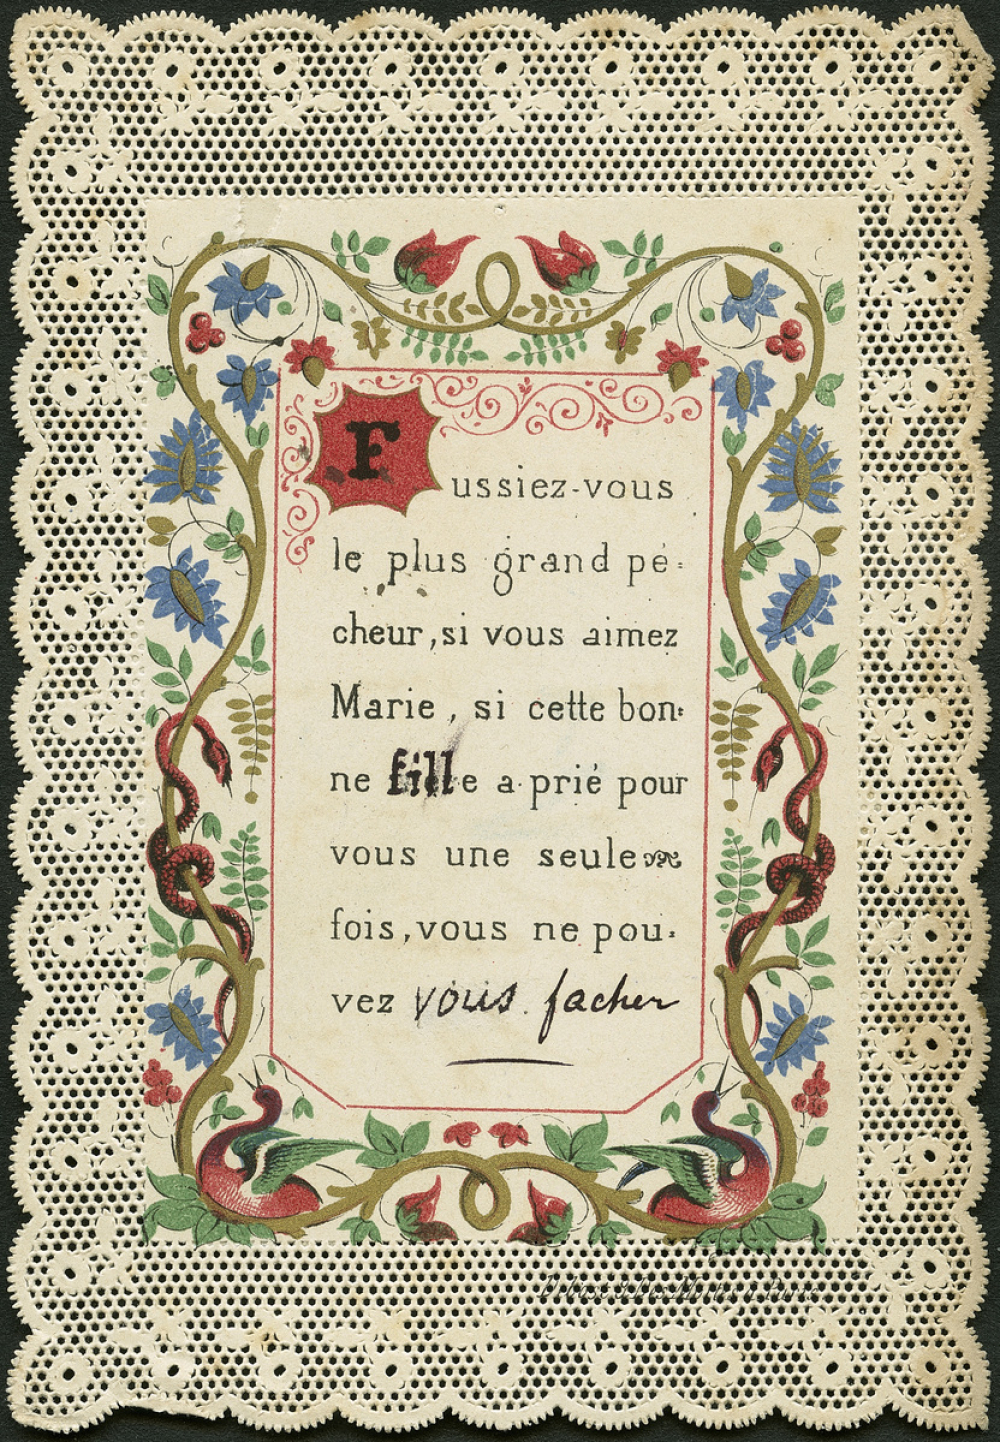 Fussiez-vous
le plus grand pé-
cheur, si vous aimez
Marie, si cette bon-
ne fille a prié pour
vous une seule
fois, vous ne pou-
vez vous facher